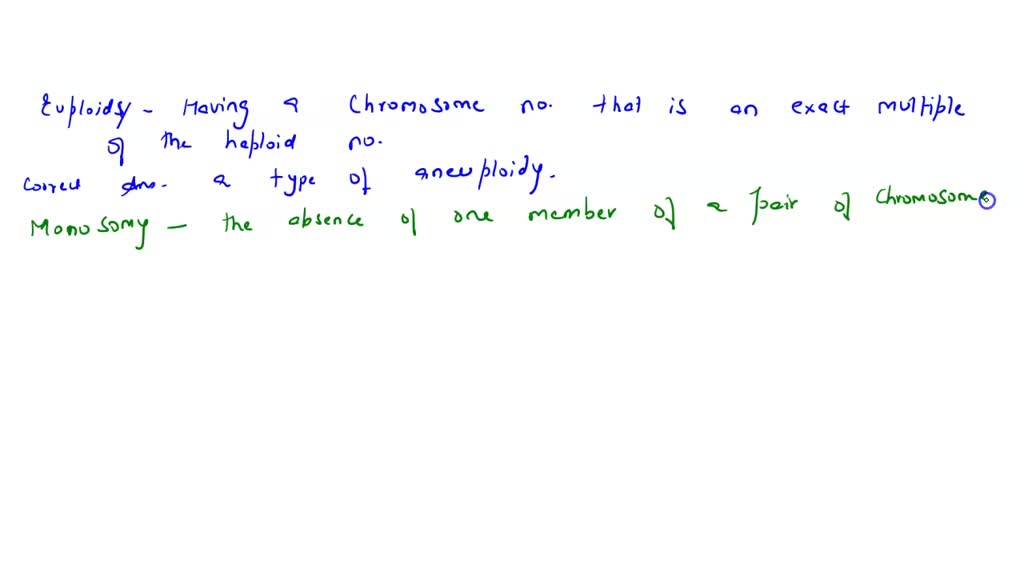 Euploidy - Having a Chromosome no. that is an exact multiple
of the haploid no.
Correct Ans. a type of aneuploidy.
Monosomy - the absence of one member of a pair of Chromosome